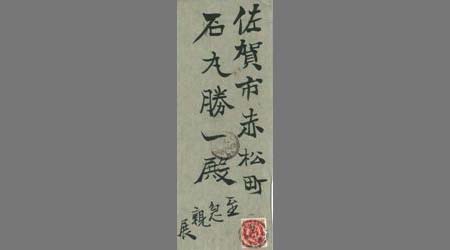 佐賀市赤松町
石丸勝一殿
至急親展